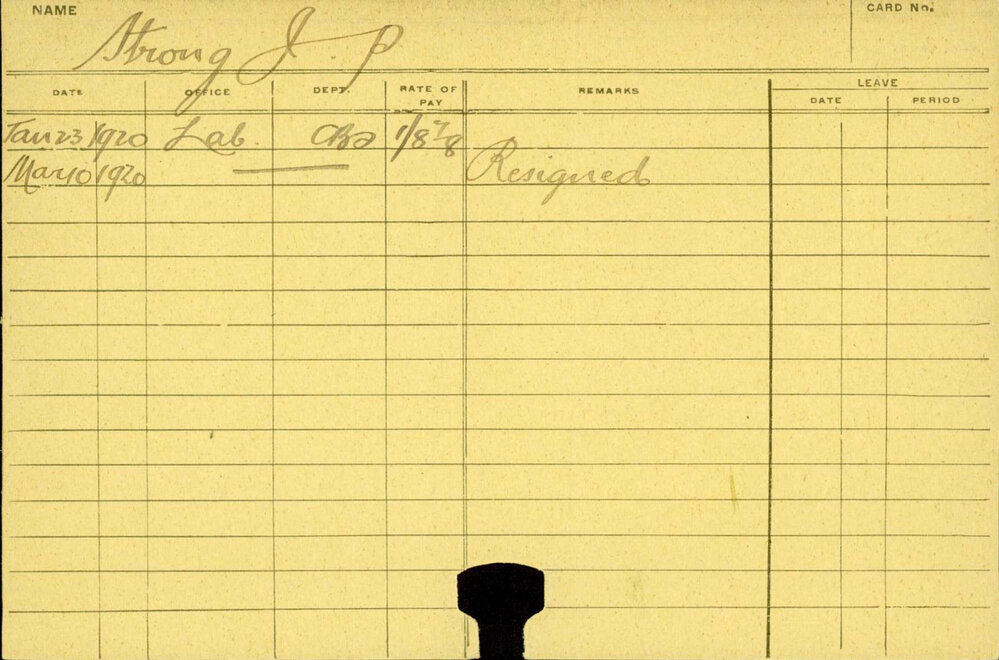 NAME
CARD No.
Strong J. P
DATE OFFICE DEPT. RATE OF PAY REMARKS LEAVE
DATE PERIOD
Jan 23 1920 Lab. 1/8 7/8
Mar 10 1920 Resigned